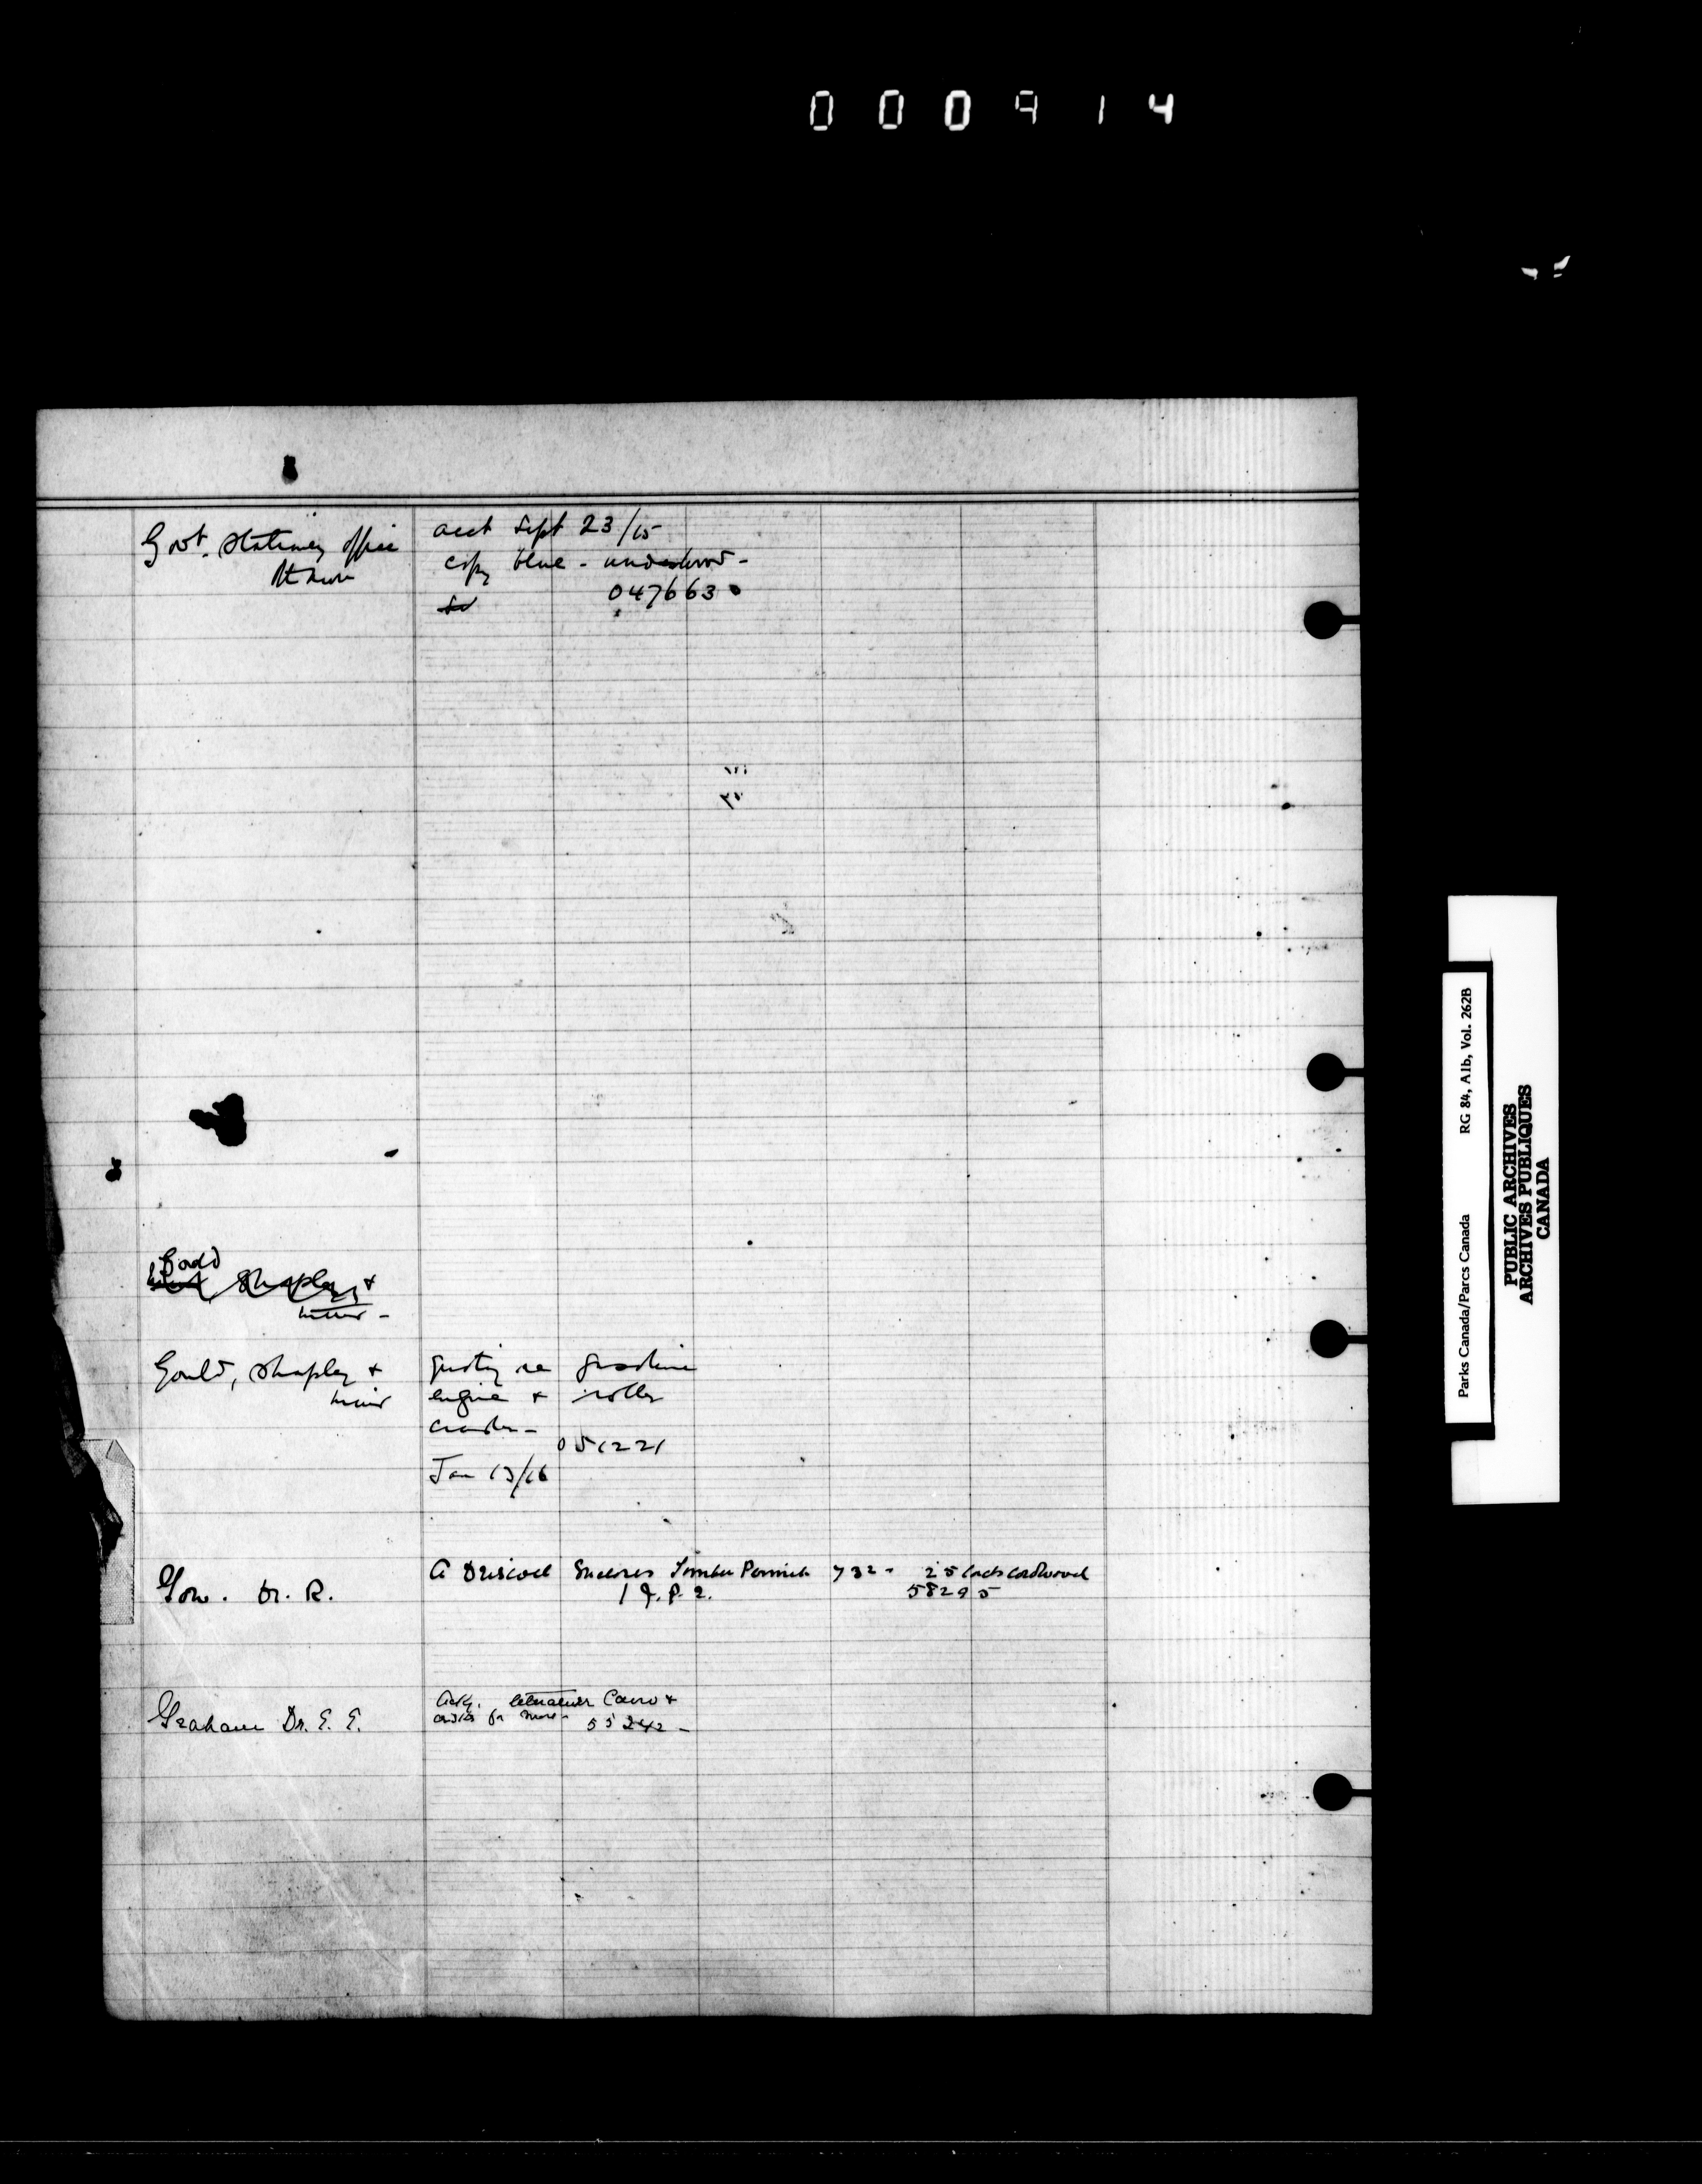 000914
Govt. Stationery Office
Ottawa
acct Sept 23/15
copy blue - underwood -
047663
Shapley &
Muir -
Gould, Shapley &
Muir
Quoting re gasoline
engine & roller
crusher -
051221
Jan 13/16
Gow. Dr. R.
A Driscoll Encloses Timber Permit 732 - 25 Cords Cordwood
58295
Graham Dr. E. E.
Ackg. literature &
asks for more -
55242 -
Parks Canada/Parcs Canada RG 84, A1b, Vol. 262B
PUBLIC ARCHIVES
ARCHIVES PUBLIQUES
CANADA